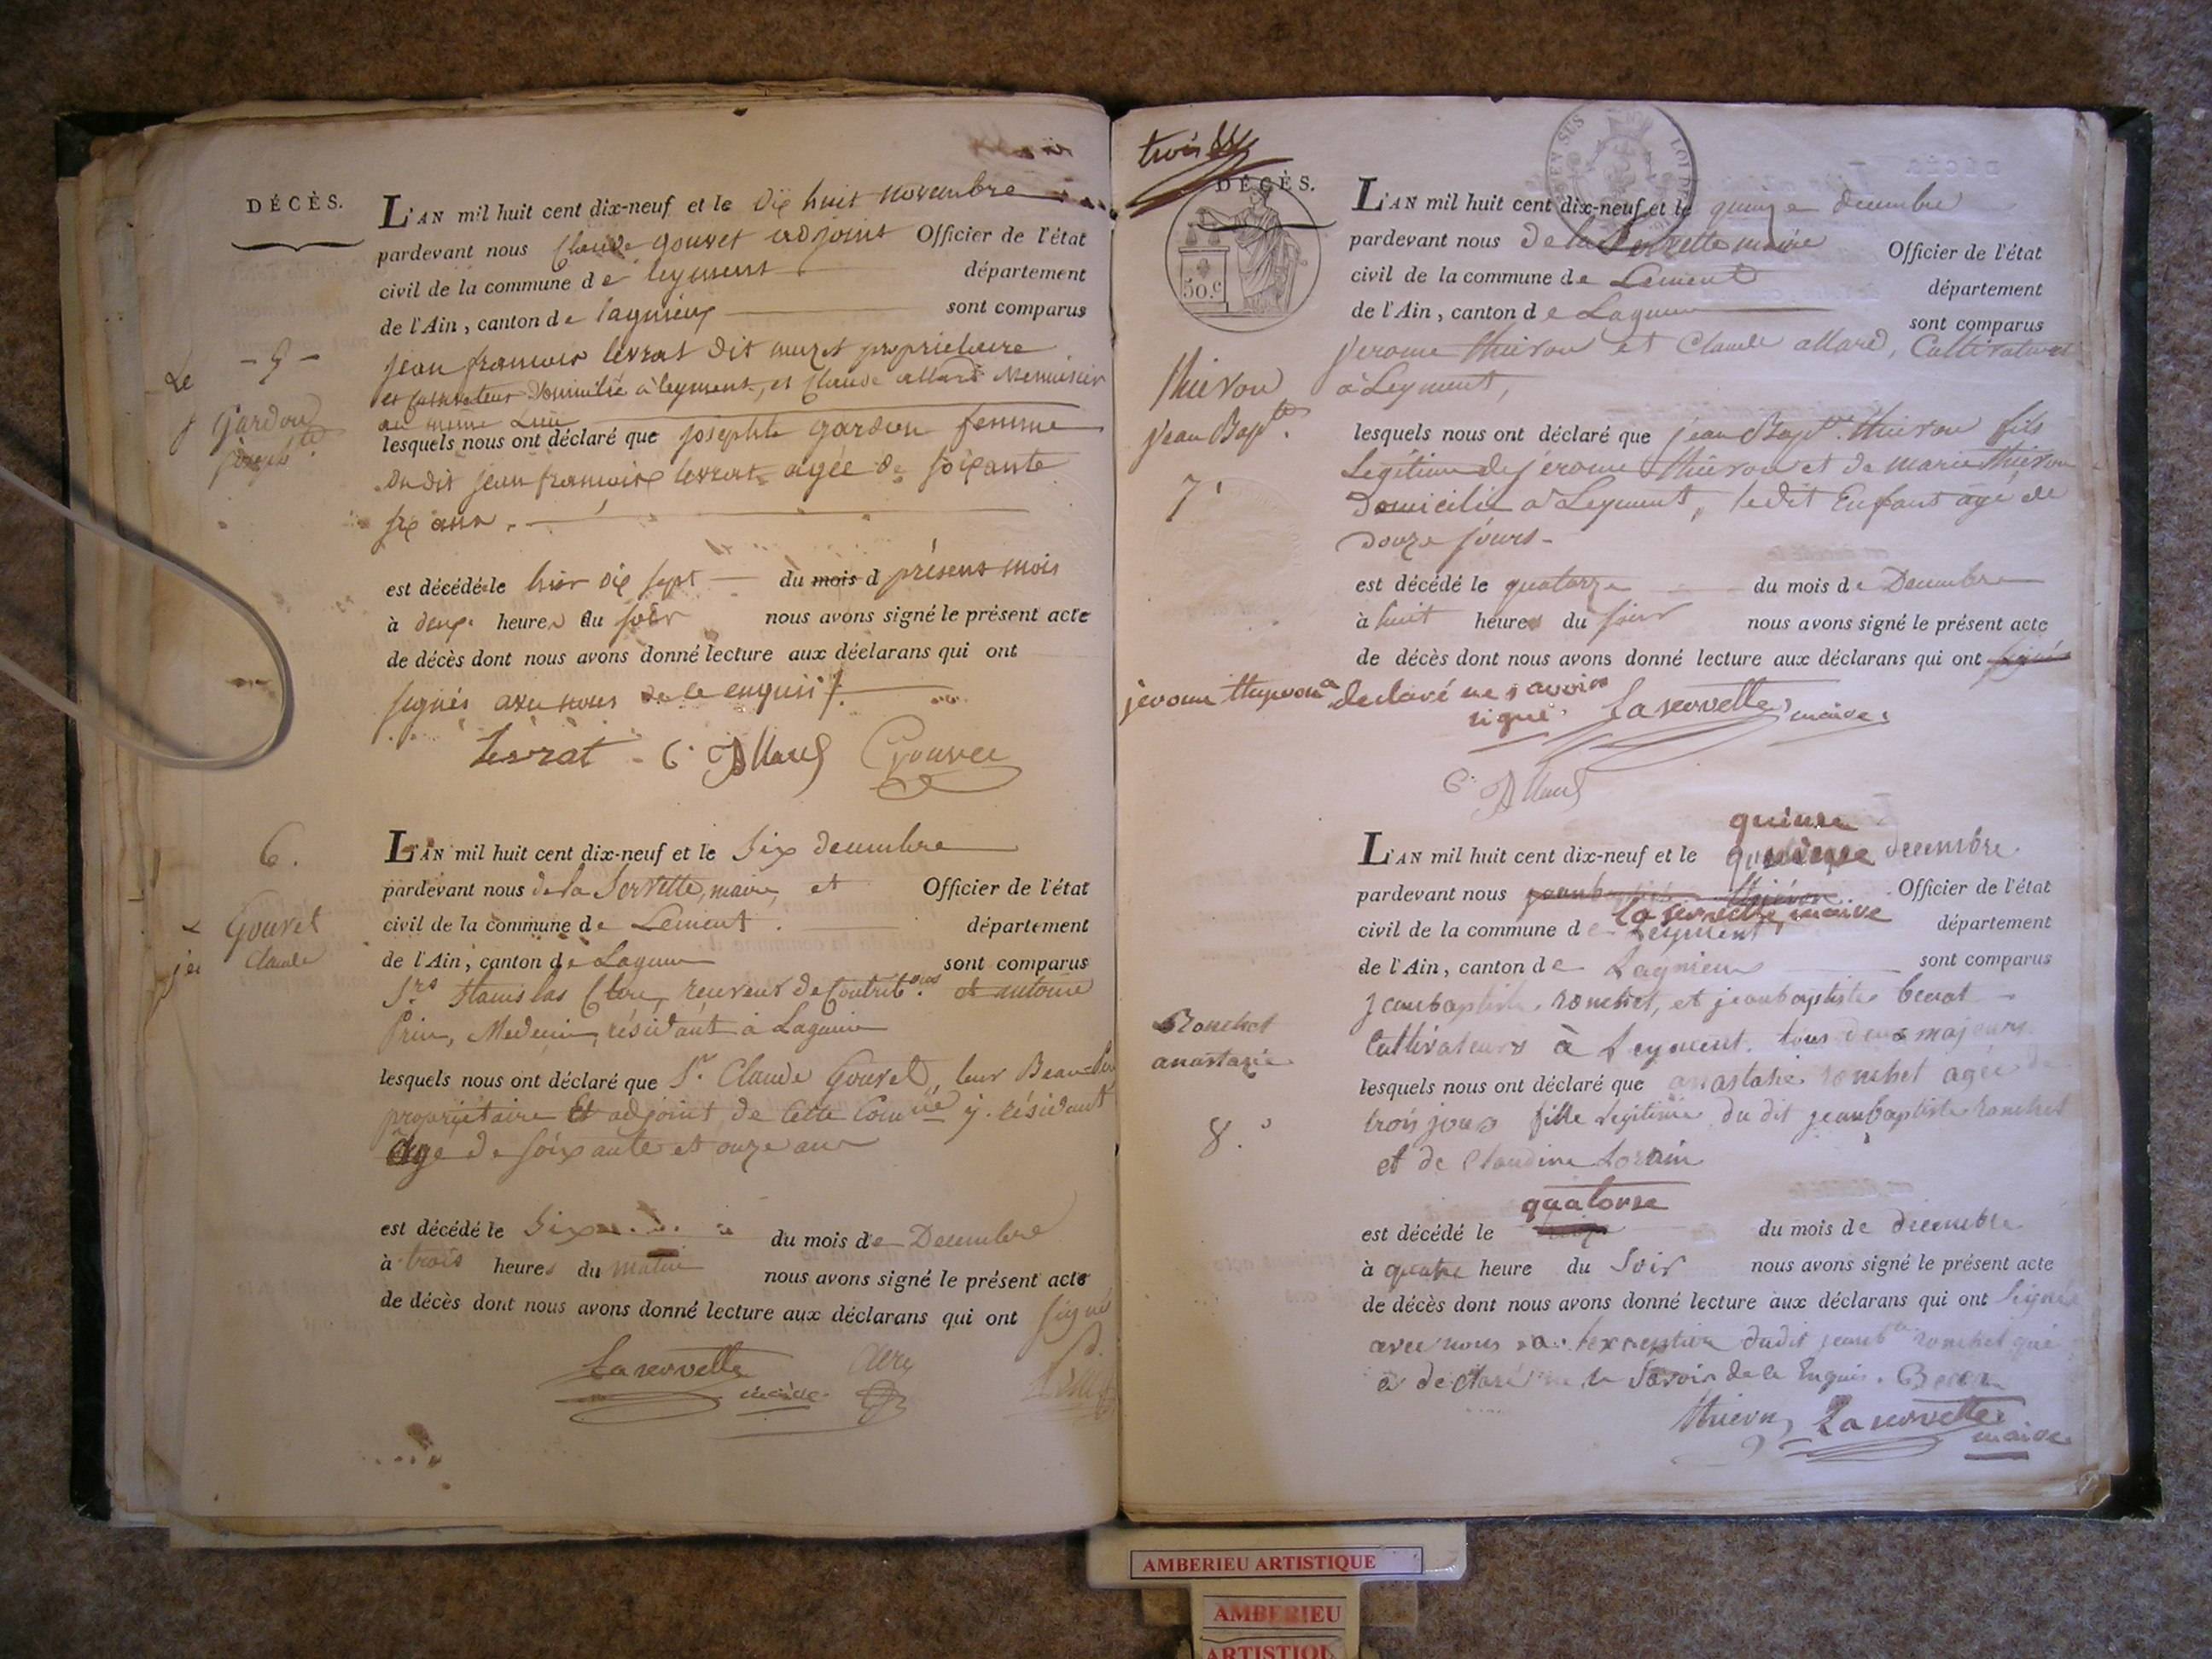 DÉCÈS.
L'AN mil huit cent dix-neuf et le dix huit novembre
pardevant nous Claude gouvet adjoint Officier de l'état
civil de la commune de leyment département
de l'Ain, canton de lagnieux sont comparus
jean francois levrat dit muzet propriétaire
et cultivateur domicilié à leyment, et Claude allard Menuisier
au même Lieu
lesquels nous ont déclaré que josephte gardon femme
du dit jean francois levrat agée de soixante
six ans.
est décédé le hier dix sept du mois d présent mois
à deux heures du soir nous avons signé le présent acte
de décès dont nous avons donné lecture aux déclarans qui ont
signés avec nous de ce enquis
Levrat C. Allard Gouvet
- 5 -
Le
Gardon
josephte
6.
Gouvet
Claude
L'AN mil huit cent dix-neuf et le Six decembre
pardevant nous de la Servette, maire, et Officier de l'état
civil de la commune de Lement département
de l'Ain, canton de Lagnieu sont comparus
Srs Stanislas Clerc, receveur de Contribons et antoine
Prin, Medecin, résidant à Lagnieu
lesquels nous ont déclaré que Sr Claude Gouvet, leur Beau
propriétaire Et adjoint de Cette Comune y résidant
âge de soixante et onze ans
est décédé le Six du mois de Decembre
à trois heures du matin nous avons signé le présent acte
de décès dont nous avons donné lecture aux déclarans qui ont signé
Laservette maire Clerc
trois
DÉCÈS.
50.c
LOI
L'AN mil huit cent dix-neuf et le quinze decembre
pardevant nous de la Servette maire Officier de l'état
civil de la commune de Lement département
de l'Ain, canton de Lagnieu sont comparus
Jerome thievon et Claude allard, Cultivateurs
à Leyment,
lesquels nous ont déclaré que jean Bapte. thievon fils
Légitime de jérome thievon et de marie thievon
Domicilié à Leyment, ledit Enfant agé de
douze jours-
est décédé le quatorze du mois de Decembre
à huit heures du soir nous avons signé le présent acte
de décès dont nous avons donné lecture aux déclarans qui ont signé
jerome thievon a declaré ne savoir
signé. Laservette maire
C. Allard
thievon
jean Bapte.
7
L'AN mil huit cent dix-neuf et le quinse decembre
pardevant nous Laservette maire Officier de l'état
civil de la commune de Leyment département
de l'Ain, canton de Lagnieu sont comparus
jeanbaptiste ronchet, et jeanbaptiste
Cultivateurs à Leyment. tous deux majeurs
lesquels nous ont déclaré que anastasie ronchet agée de
trois jours fille legitime du dit jeanbaptiste ronchet
et de Claudine Lorain
quatorse
est décédé le du mois de decembre
à quatre heure du Soir nous avons signé le présent acte
de décès dont nous avons donné lecture aux déclarans qui ont Signé
avec nous a l'exception dudit jeanbte ronchet qui
a declaré ne le Savoir de ce Enquis.
thievon Laservette
maire
Ronchet
anastazie
8.
AMBERIEU ARTISTIQUE
AMBERIEU
ARTISTIQU